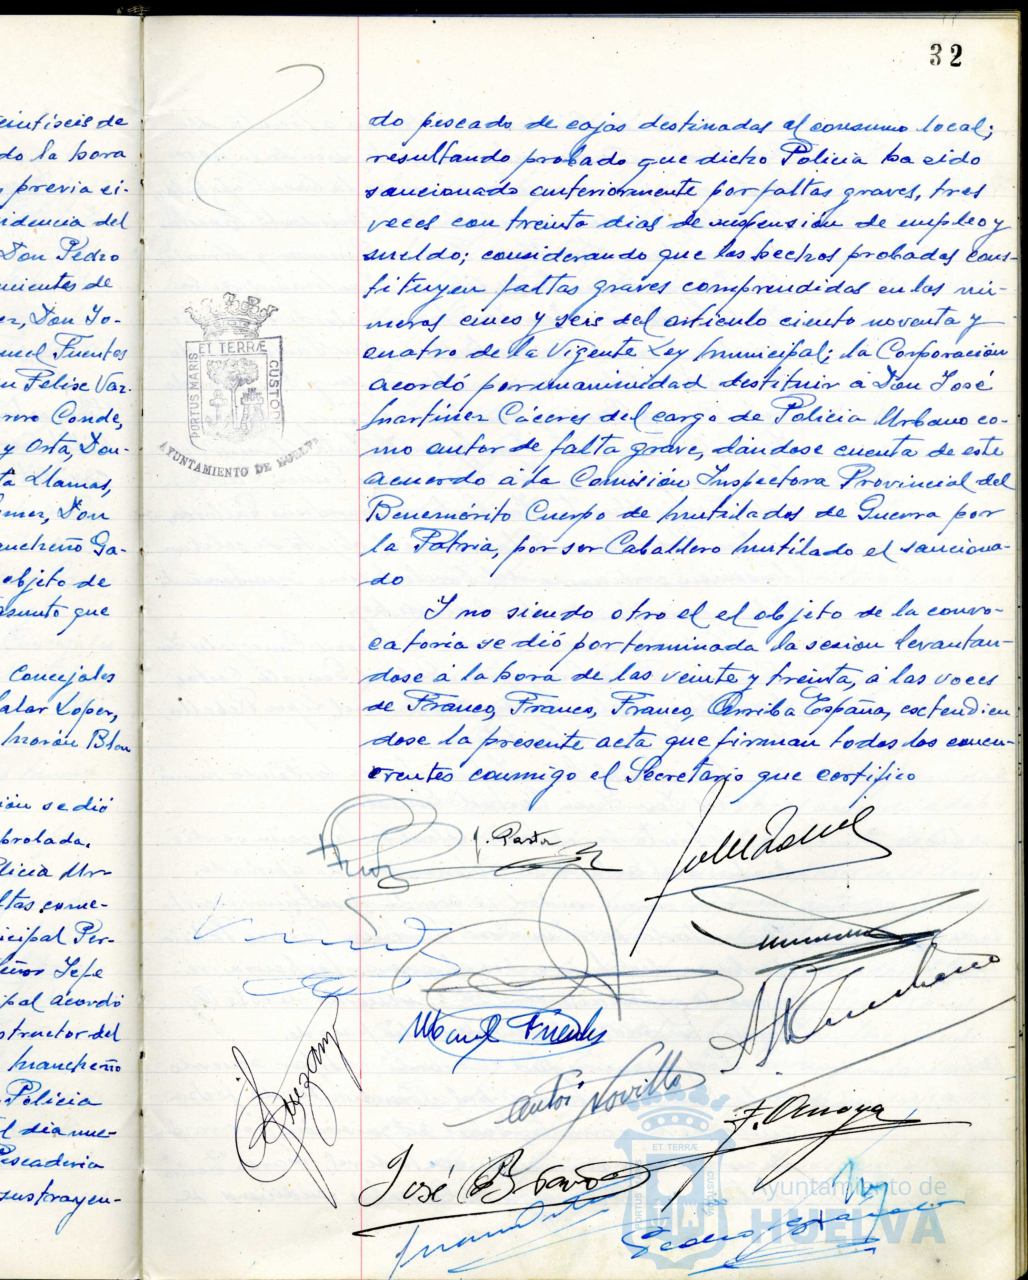 32
eintiseis de
do la hora
previa ci-
idencia del
Don Pedro
nientes de
ez, Don Jo-
uel Fuentes
n Felise Vaz-
rero Conde,
y Orta, Don
ta Llamas,
mez, Don
ancheño Ga-
objeto de
asunto que
Concejales
alar Lopez,
morón Blan
ión se dió
probada.
licia Ur-
ltas come-
icipal Per-
eñor Jefe
ipal acordó
structor del
mancheño
Policia
l dia nue-
Pescaderia
sustrayen-
do pescado de cajas destinadas al consumo local;
resultando probado que dicho Policia ha sido
sancionado anteriormente por faltas graves, tres
veces con treinta dias de suspensión de empleo y
sueldo; considerando que los hechos probados cons-
tituyen faltas graves comprendidas en los nú-
meros cinco y seis del artículo ciento noventa y
cuatro de la Vigente Ley Municipal; la Corporación
acordó por unanimidad destituir á Don José
Martinez Cáceres del cargo de Policia Urbano co-
mo autor de falta grave, dándose cuenta de este
acuerdo á la Comisión Inspectora Provincial del
Benemérito Cuerpo de Mutilados de Guerra por
la Patria, por ser Caballero Mutilado el sanciona-
do
Y no siendo otro el el objeto de la convo-
catoria se dió por terminada la sesion levantan-
dose á la hora de las veinte y treinta, á las voces
de Franco, Franco, Franco, Arriba España, extendien
dose la presente acta que firman todos los concu-
rrentes conmigo el Secretario que certifico
ET TERRÆ
PORTUS MARIS
CUSTOD
AYUNTAMIENTO DE HUELVA
J. Pastor
Manuel Fuentes
Antº Novillo
F. Amaya
José Bravo
ET TERRÆ
Ayuntamiento de
HUELVA